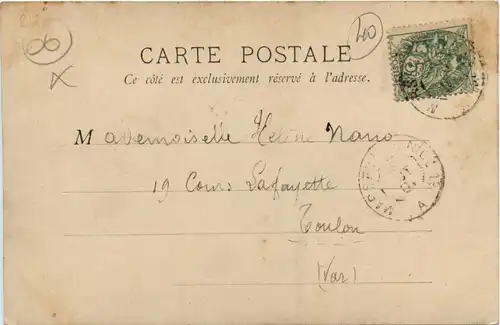 06
400
CARTE POSTALE
Ce côté est exclusivement réservé à l'adresse.
Mademoiselle Hélène Nano
19 Cours Lafayette
Toulon
(Var)